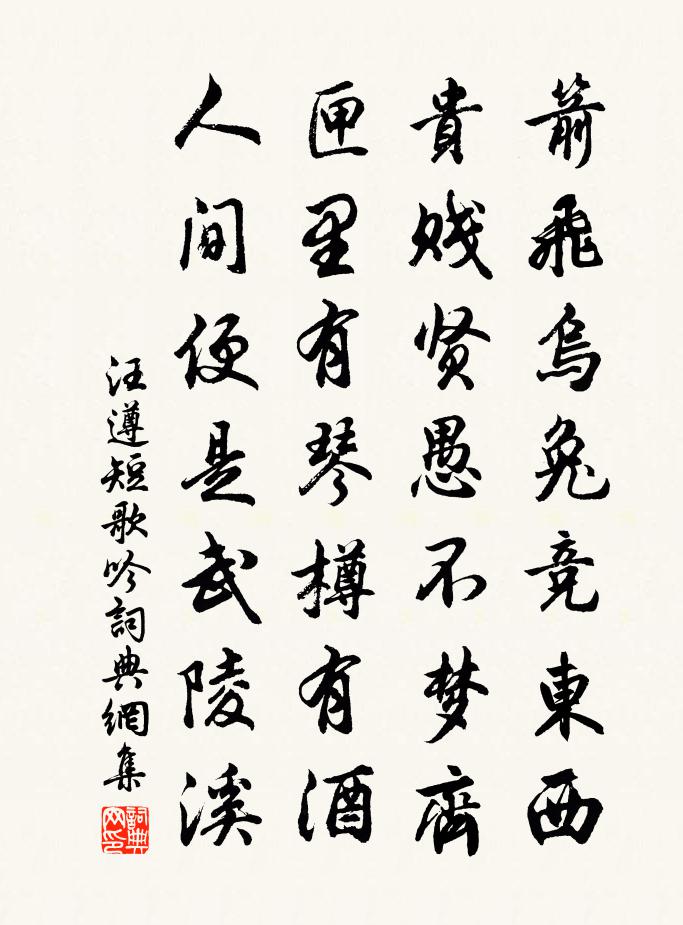 箭飛烏兔竞東西
貴賎贤愚不梦齊
匣里有琴樽有酒
人间便是武陵溪
汪遵短歌吟詞典網集
詞典网印